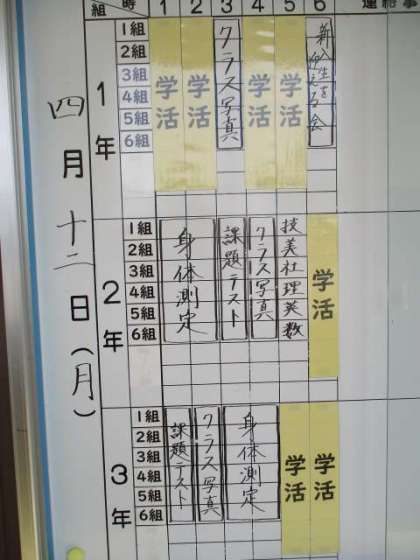 組 時 1 2 3 4 5 6 連絡事
四月十二日(月)
1年
1組
2組
3組
4組
5組
6組
学活
学活
クラス写真
学活
学活
新入生を
迎える会
2年
1組
2組
3組
4組
5組
6組
身体測定
課題テスト
クラス写真
技美社理英数
学活
3年
1組
2組
3組
4組
5組
6組
課題テスト
クラス写真
身体測定
学活
学活